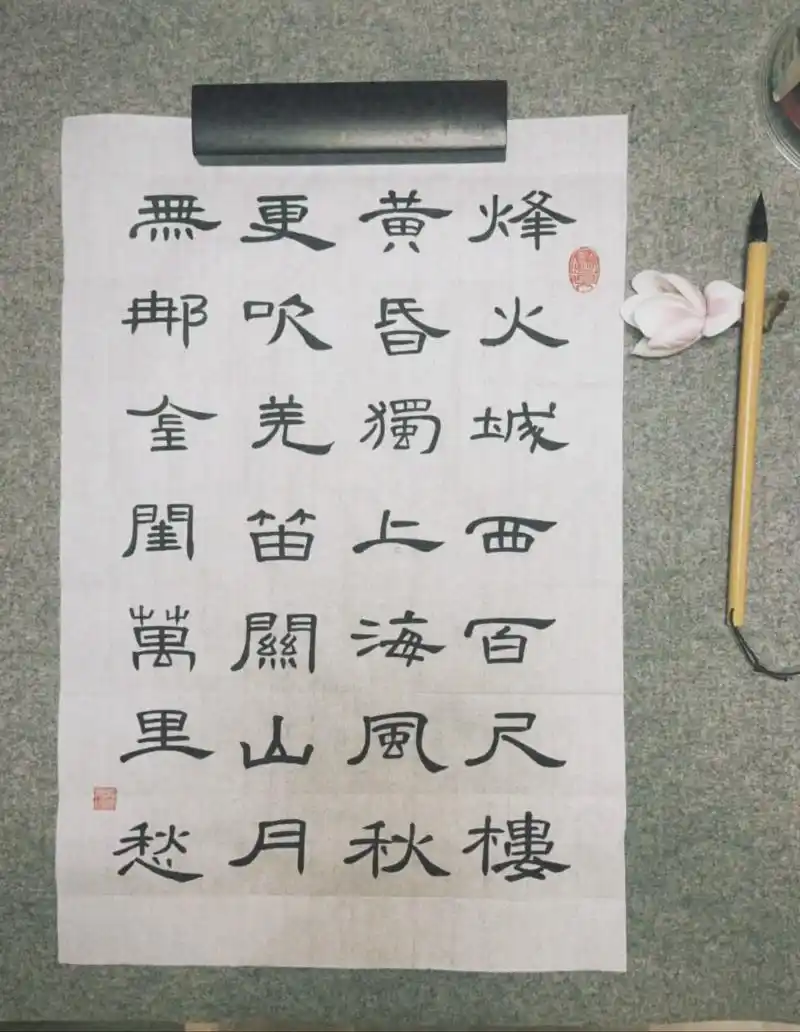 烽火城西百尺樓
黃昏獨上海風秋
更吹羌笛關山月
無那金閨萬里愁